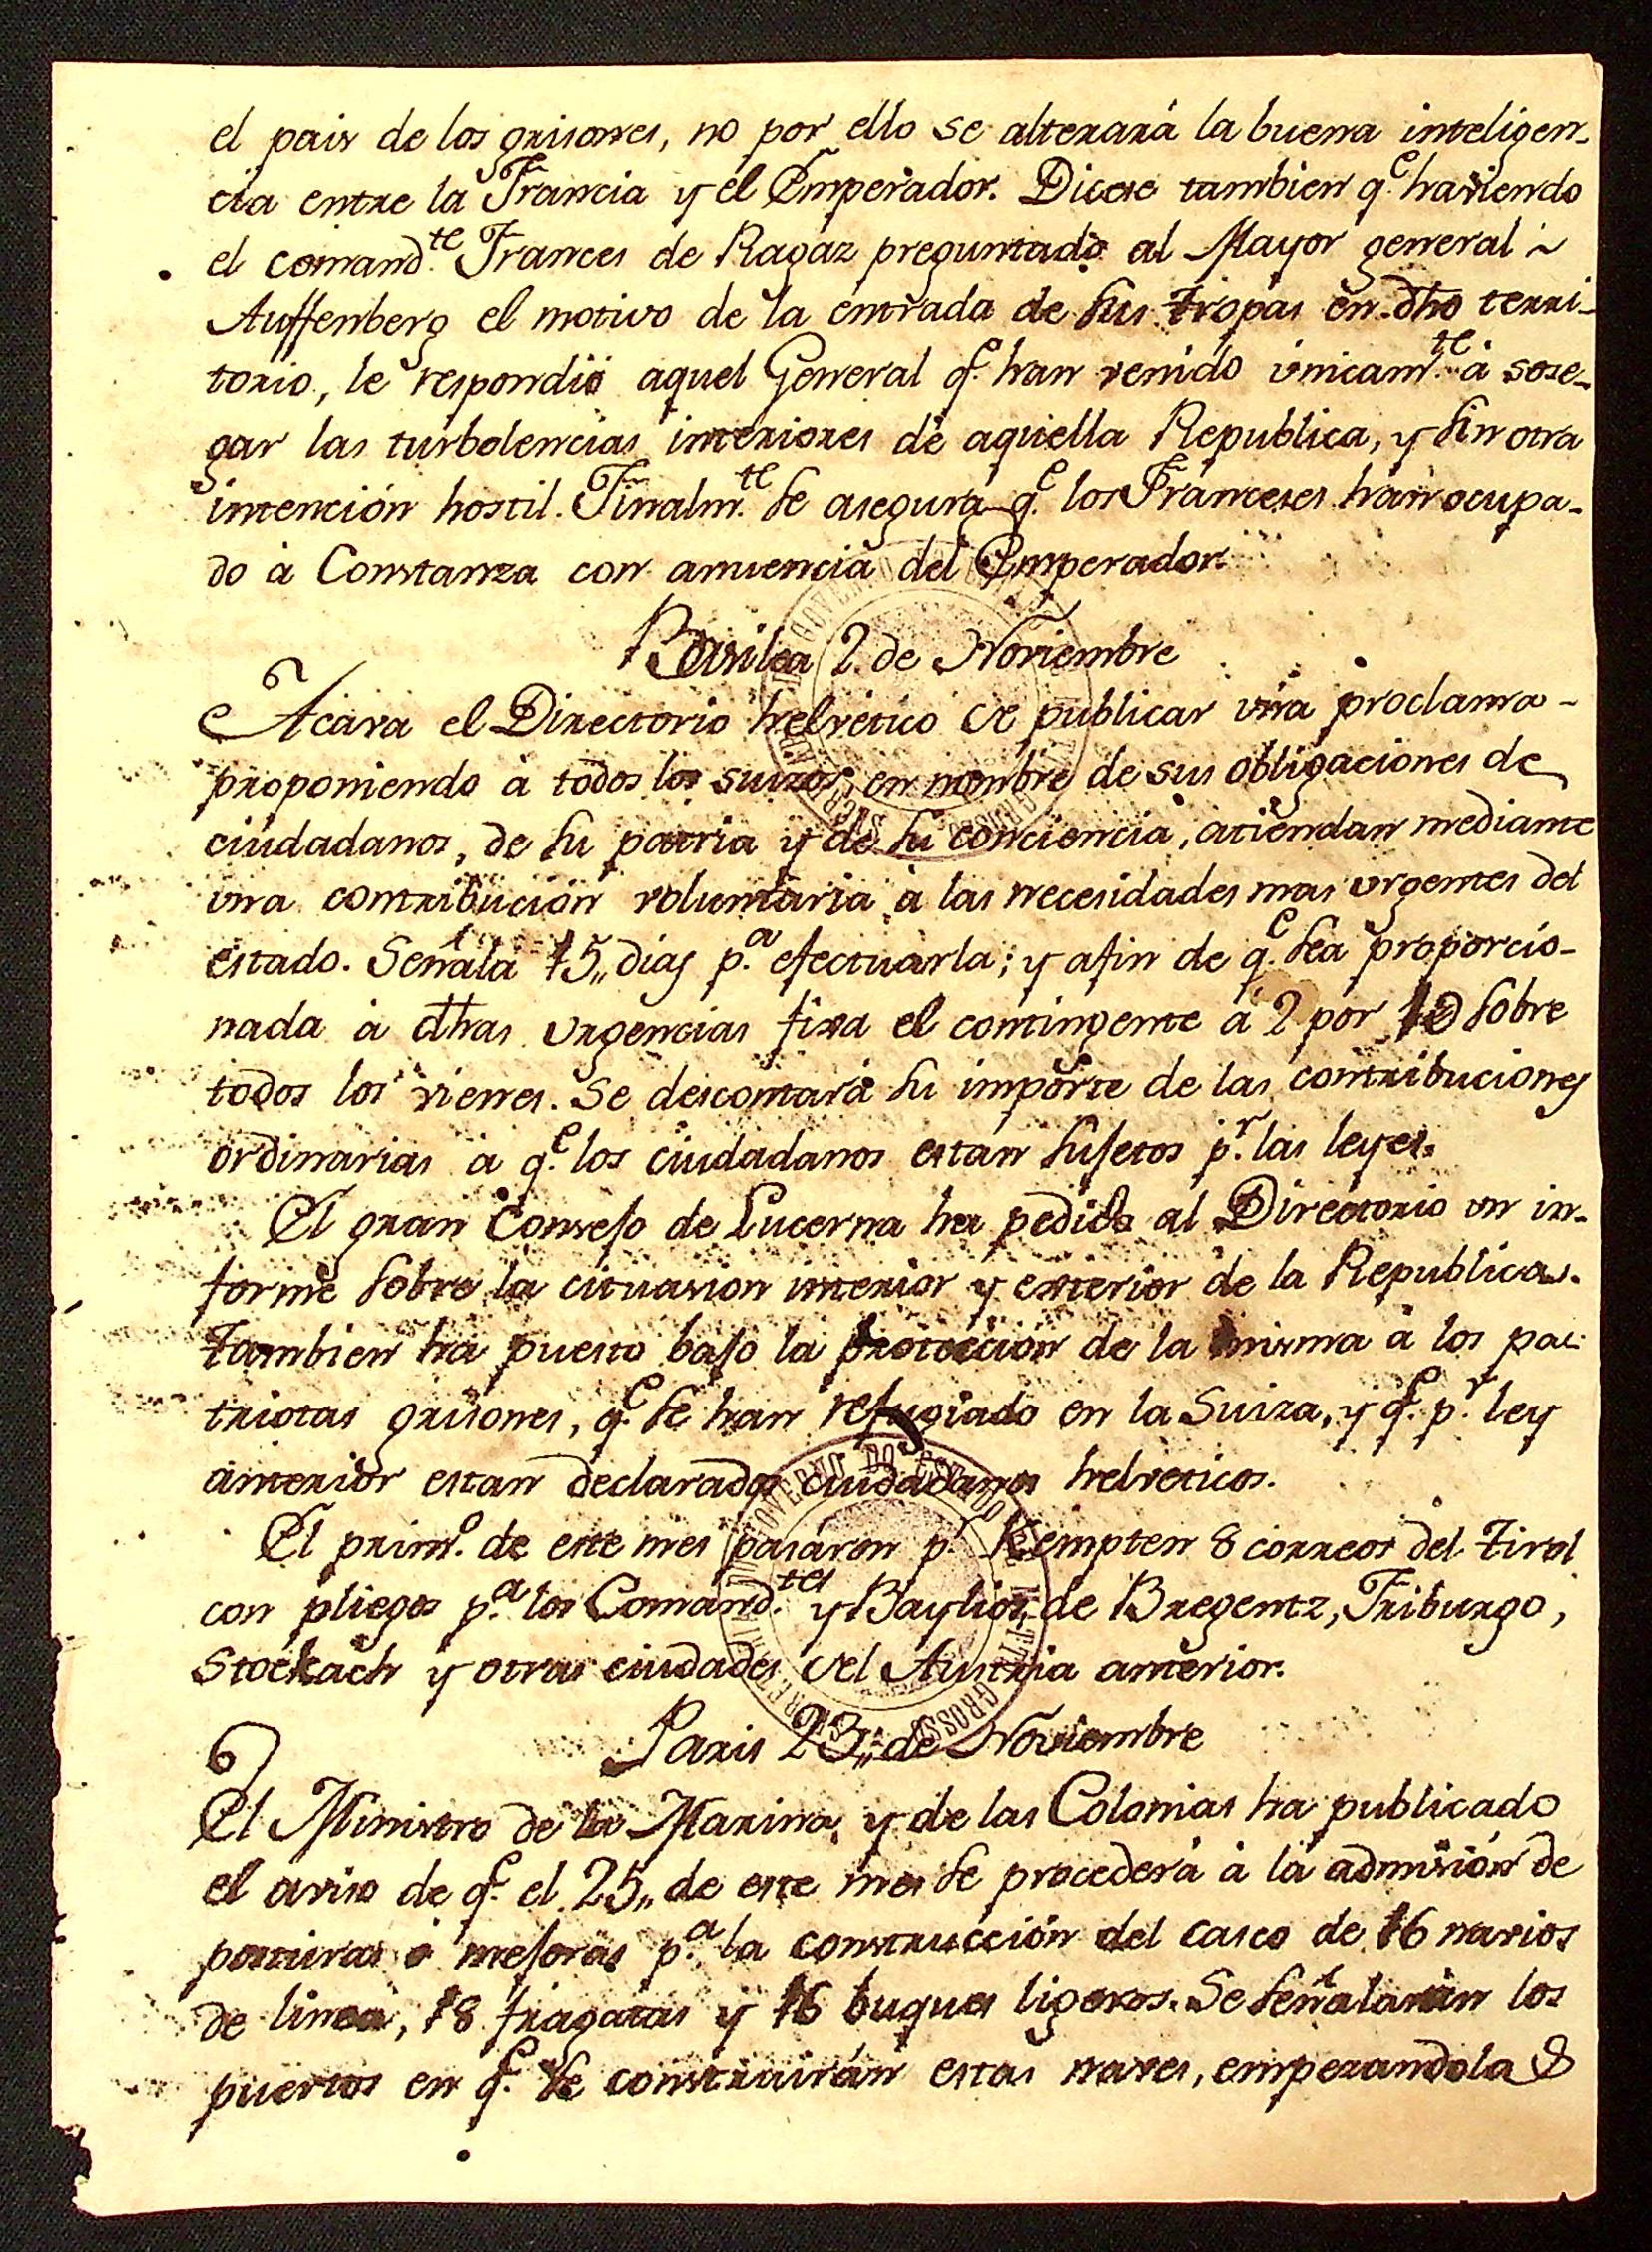 el pais de los grisones, no por ello se alterará la buena inteligen-
cia entre la Francia y el Emperador. Dicese tambien q.e haviendo
el comand.te Frances de Ragaz preguntado al Mayor general
Auffenberg el motivo de la entrada de sus tropas en dho terri-
torio, le respondió aquel General q.e han venido únicam.te á sose-
gar las turbolencias interiores de aquella Republica, y sin otra
intención hostil. Finalm.te se asegura q.e los Franceses han ocupa-
do á Constanza con anuencia del Emperador.
Basilea 2. de Noviembre
Acava el Directorio helvetico de publicar una proclama
proponiendo á todos los suizos, en nombre de sus obligaciones de
ciudadanos, de su patria y de su conciencia, atiendan mediante
una contribución voluntaria á las necesidades mas urgentes del
estado. Señala 15,, dias p.a efectuarla; y afin de q.e sea proporcio-
nada á dhas urgencias fixa el contingente á 2 por 10 sobre
todos los vienes. Se descontará su importe de las contribuciones
ordinarias á q.e los ciudadanos están sujetos p.r las leyes.
El gran Consejo de Lucerna ha pedido al Directorio un in-
forme sobre la cituasion interior y exterior de la Republica.
Tambien ha puesto bajo la protección de la misma á los pa-
triotas grisones, q.e se han refugiado en la Suiza, y q.e p.r ley
anterior estan declarados ciudadanos helveticos.
El prim.o de este mes pasáron p.r Kempten 8 correos del Tirol
con pliegos p.a los Comand.tes y Baylios de Bregentz, Friburgo,
Stockach y otras ciudades del Austria anterior.
Paris 23,, de Noviembre
El Ministro de la Marina, y de las Colonias ha publicado
el aviso de q.e el 25,, de este mes se procederá á la admisión de
posturas ó mejoras p.a la construcción del casco de 16 navios
de linea, 18 fragatas y 16 buques ligeros. Se señalarán los
puertos en q.e se construirán estas naves, empezandola
GOVERNO DO ESTADO DE MATTO GROSSO
GOVERNO DO ESTADO DE MATTO GROSSO